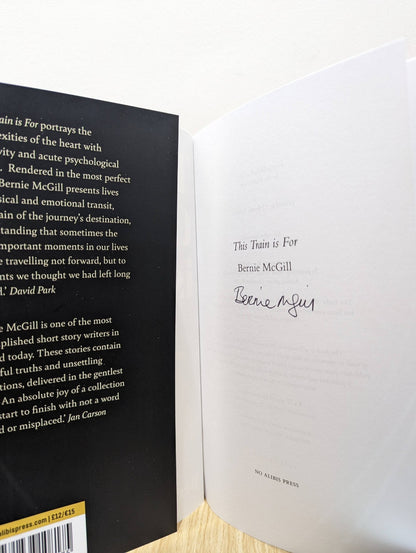 ain is For portrays the
exities of the heart with
vity and acute psychological
. Rendered in the most perfect
Bernie McGill presents lives
sical and emotional transit,
ain of the journey's destination,
standing that sometimes the
mportant moments in our lives
e travelling not forward, but to
nts we thought we had left long
d.' David Park
e McGill is one of the most
plished short story writers in
d today. These stories contain
ful truths and unsettling
tions, delivered in the gentlest
An absolute joy of a collection
start to finish with not a word
d or misplaced.' Jan Carson
alibispress.com | £12/€15
This Train is For
Bernie McGill
Bernie McGill
NO ALIBIS PRESS